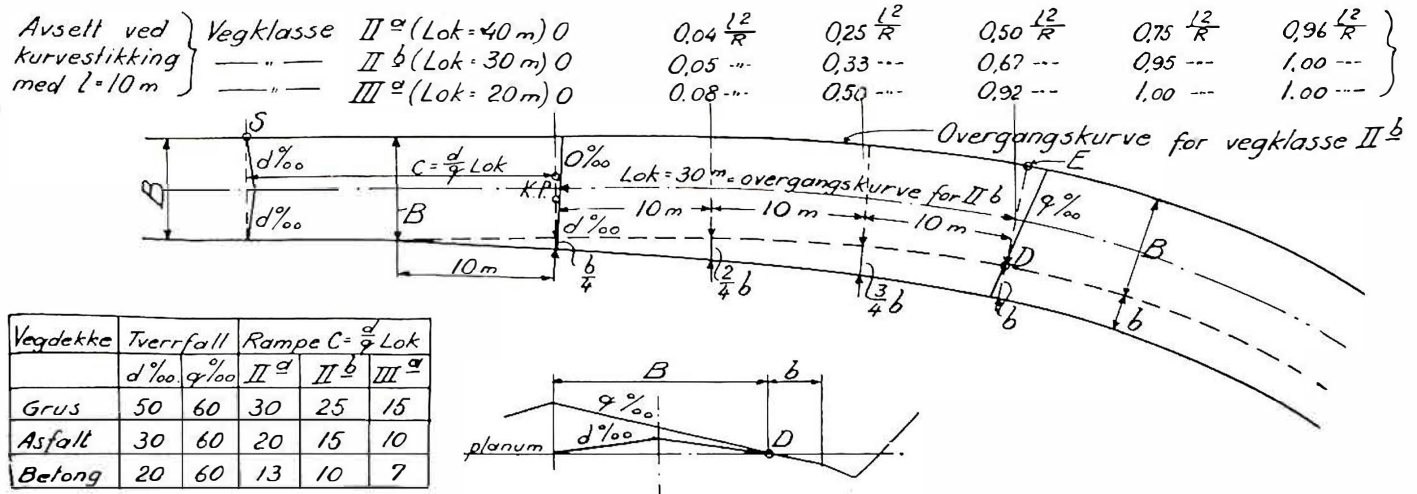 Avsett ved kurvestikking med l=10m
Vegklasse II a (Lok=40m) 0 0,04 l²/R 0,25 l²/R 0,50 l²/R 0,75 l²/R 0,96 l²/R
—〃— II b (Lok=30m) 0 0,05 -〃- 0,33 -〃- 0,67 -〃- 0,95 -〃- 1.00 -〃-
—〃— III a (Lok=20m) 0 0.08 -〃- 0,50 -〃- 0,92 -〃- 1,00 -〃- 1.00 -〃-
Overgangskurve for vegklasse II b
S
E
d‰
C = d/q Lok
0‰
Lok=30 m = overgangskurve for II b
B
K.P.
q‰
d‰
B
d‰
10 m
10 m
10 m
D
B
10 m
b/4
2/4 b
3/4 b
b
b
Vegdekke Tverrfall Rampe C = d/q Lok
d‰ q‰ II a II b III a
Grus 50 60 30 25 15
Asfalt 30 60 20 15 10
Betong 20 60 13 10 7
B b
q‰
d‰
planum
D